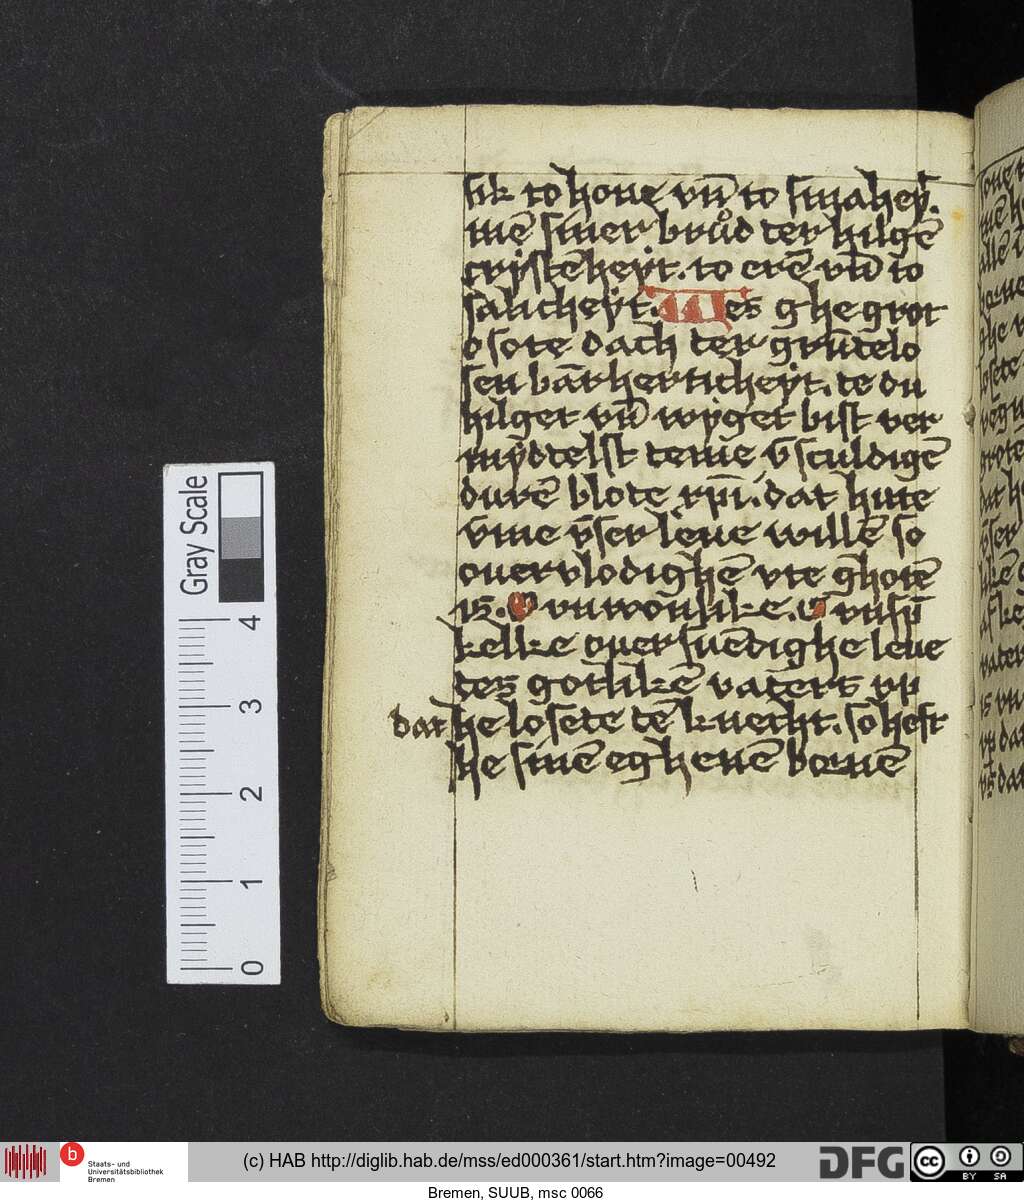 sik to houe vn̄ to smahey.
mē siner brůd ter hilgē
cristēheyt. to erē vn̄ to
salicheyt. Wes ghegrot
o sote dach ter grūtelo
sen bārherticheyt. te du
hilget vn̄ wyget bist ver
mydtelst teme v̄sculdigē
durē blote xp̄i. dat hute
v̄me v̄ser leue willē so
ouervlodighē vte ghotē
is. O vnwonlike. O vnsp̄
kelke ouersuēdighe leue
tes gotlikē vaters vp
dat he losete tē knecht. so heft
he sinē eghenē bornē
Gray Scale
4
3
2
1
0
b
Staats- und
Universitätsbibliothek
Bremen
(c) HAB http://diglib.hab.de/mss/ed000361/start.htm?image=00492
DFG
cc
BY SA
Bremen, SUUB, msc 0066